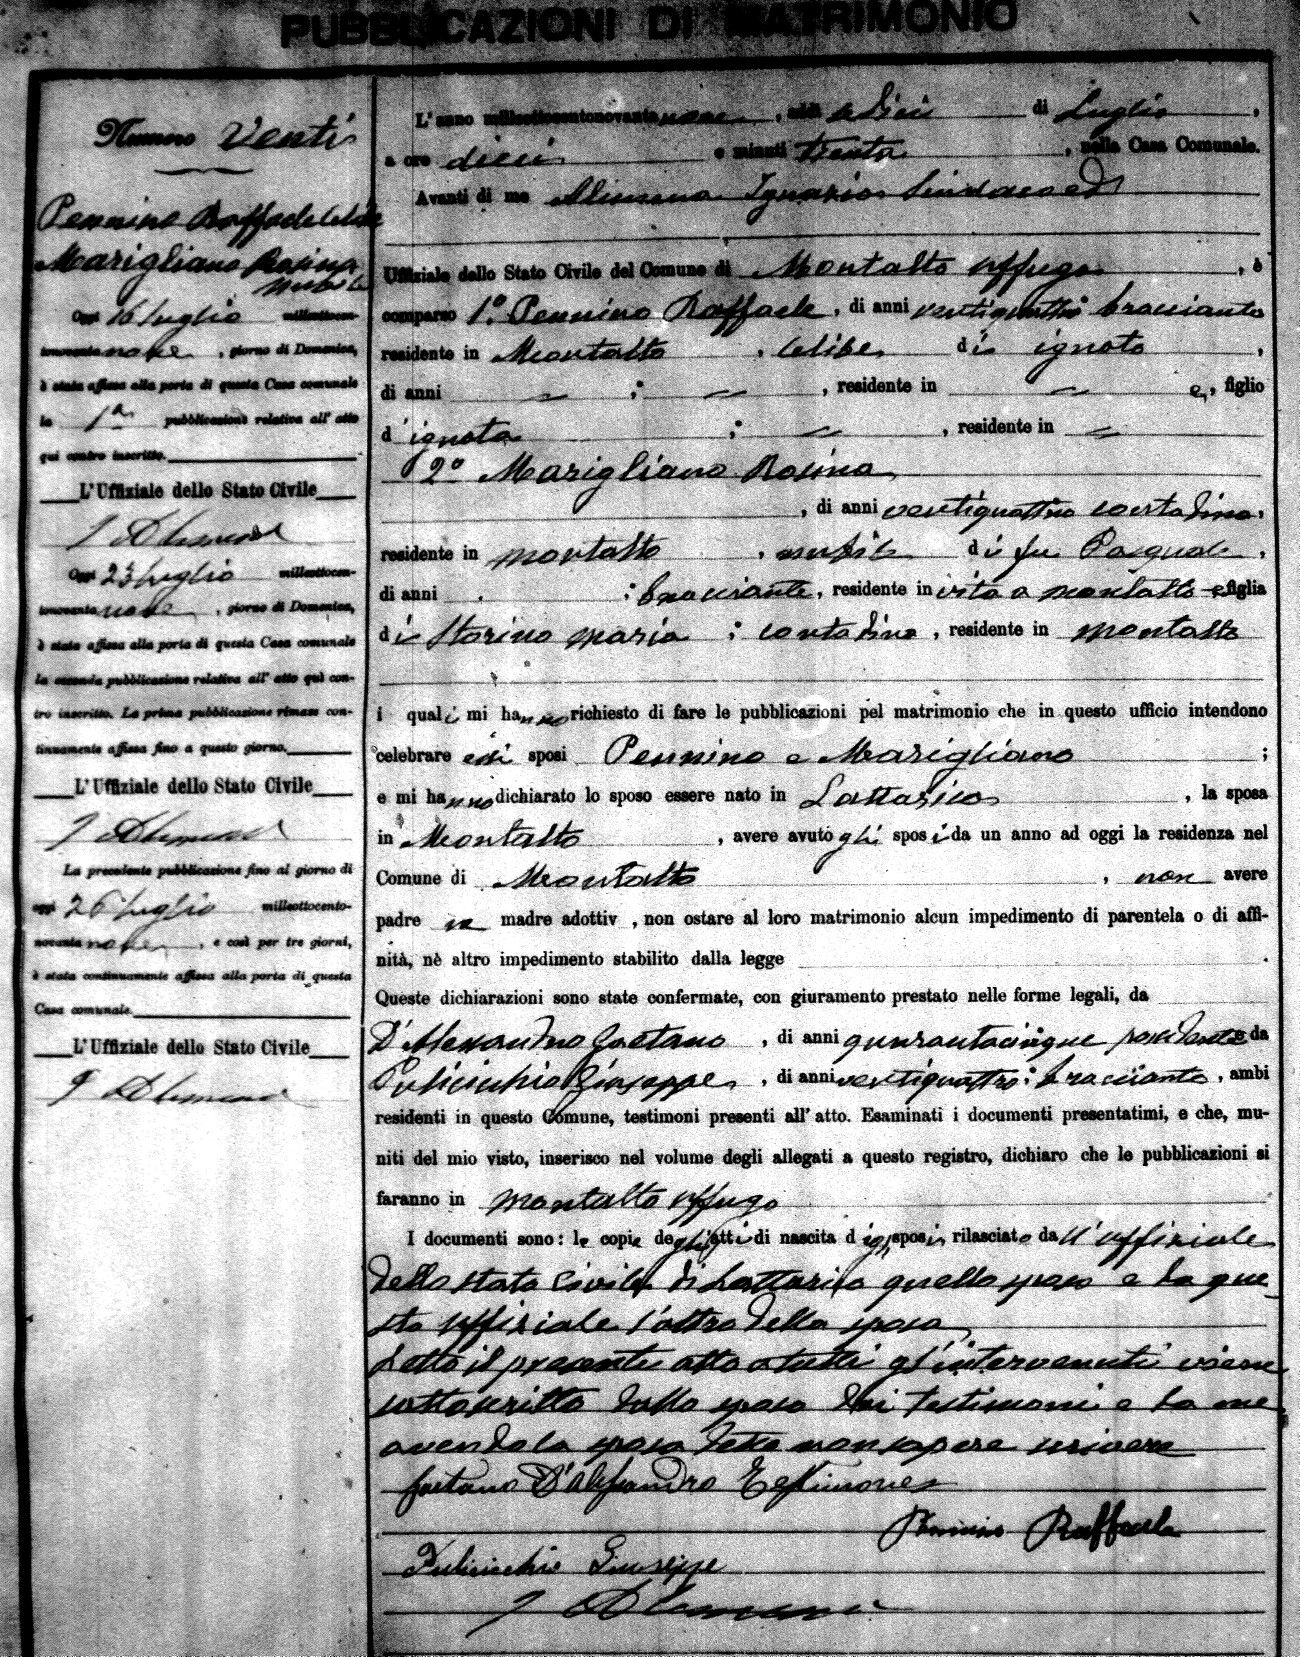 PUBBLICAZIONI DI MATRIMONIO
Numero Venti
Pennino Raffaele celibe
Marigliano Rosina
nubile
Oggi 16 luglio milleottocen-
tonovanta nove, giorno di Domenica,
è stata affissa alla porta di questa Casa comunale
la 1a pubblicazione relativa all' atto
qui contro inscritto.
L'Uffiziale dello Stato Civile
Oggi 23 luglio milleottocen-
tonovanta nove, giorno di Domenica,
è stata affissa alla porta di questa Casa comunale
la seconda pubblicazione relativa all' atto quì con-
tro inscritto. La prima pubblicazione rimase con-
tinuamente affissa fino a questo giorno.
L'Uffiziale dello Stato Civile
La precedente pubblicazione fino al giorno di
oggi 26 luglio milleottocento-
novanta nove, e così per tre giorni,
è stata continuamente affissa alla porta di questa
Casa comunale.
L'Uffiziale dello Stato Civile
L'anno milleottocentonovanta nove, addì di Luglio,
a ore dieci e minuti trenta, nella Casa Comunale.
Avanti di me Alimena Ignazio Sindaco ed
Uffiziale dello Stato Civile del Comune di Montalto Uffugo, è
comparso 1.º Pennino Raffaele, di anni ventiquattro bracciante
residente in Montalto, celibe di ignoto,
di anni " ; " , residente in " e, figlio
d' ignota ; " , residente in "
2º Marigliano Rosina
, di anni ventiquattro contadina,
residente in Montalto, nubile di fu Pasquale,
di anni ; bracciante, residente in vita a Montalto e figlia
di Storino Maria ; contadina, residente in Montalto
i quali mi hanno richiesto di fare le pubblicazioni pel matrimonio che in questo ufficio intendono
celebrare essi sposi Pennino e Marigliano ;
e mi hanno dichiarato lo sposo essere nato in Lattarico, la sposa
in Montalto, avere avuto gli sposi da un anno ad oggi la residenza nel
Comune di Montalto, non avere
padre nè madre adottiv , non ostare al loro matrimonio alcun impedimento di parentela o di affi-
nità, nè altro impedimento stabilito dalla legge .
Queste dichiarazioni sono state confermate, con giuramento prestato nelle forme legali, da
D'Alessandro Gaetano, di anni quarantacinque possidente e da
Pulicicchio Giuseppe, di anni ventiquattro: bracciante, ambi
residenti in questo Comune, testimoni presenti all' atto. Esaminati i documenti presentatimi, e che, mu-
niti del mio visto, inserisco nel volume degli allegati a questo registro, dichiaro che le pubblicazioni si
faranno in Montalto Uffugo
I documenti sono: le copie degli atti di nascita degli sposi, rilasciate da l'uffiziale
dello stato Civile di Lattarico quello sposo e da que-
sto uffiziale l'altro della sposa
Letto il presente atto a tutti gl'intervenuti viene
sottoscritto dallo sposo dai testimoni e da me
avendo la sposa detto non sapere scrivere
Gaetano D'Alessandro Testimone
Pennino Raffaele
Pulicicchio Giuseppe